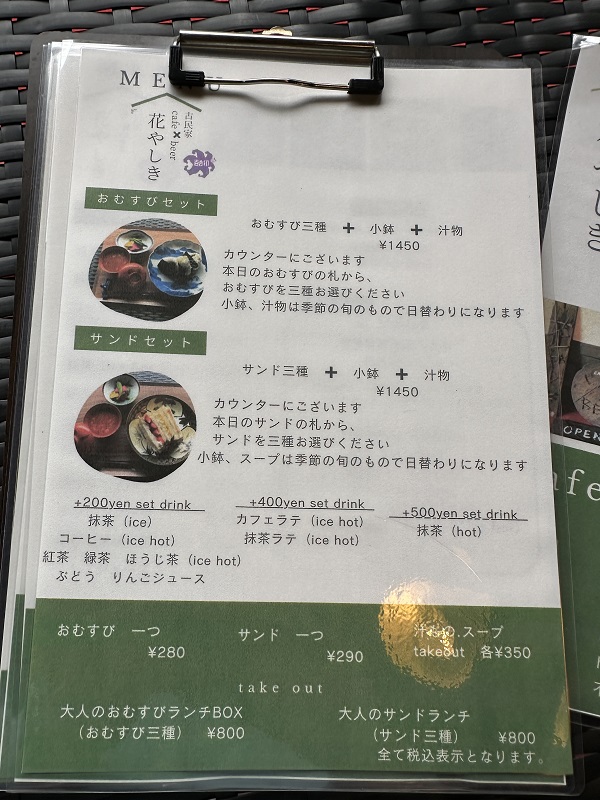 MENU
古民家
cafe×beer
花やしき
おむすびセット
おむすび三種 + 小鉢 + 汁物
¥1450
カウンターにございます
本日のおむすびの札から、
おむすびを三種お選びください
小鉢、汁物は季節の旬のもので日替わりになります
サンドセット
サンド三種 + 小鉢 + 汁物
¥1450
カウンターにございます
本日のサンドの札から、
サンドを三種お選びください
小鉢、スープは季節の旬のもので日替わりになります
+200yen set drink
抹茶（ice）
コーヒー（ice hot）
紅茶 緑茶 ほうじ茶（ice hot）
ぶどう りんごジュース
+400yen set drink
カフェラテ（ice hot）
抹茶ラテ（ice hot）
+500yen set drink
抹茶（hot）
おむすび 一つ
¥280
サンド 一つ
¥290
汁もの.スープ
takeout 各¥350
take out
大人のおむすびランチBOX
（おむすび三種） ¥800
大人のサンドランチ
（サンド三種） ¥800
全て税込表示となります。
OPEN